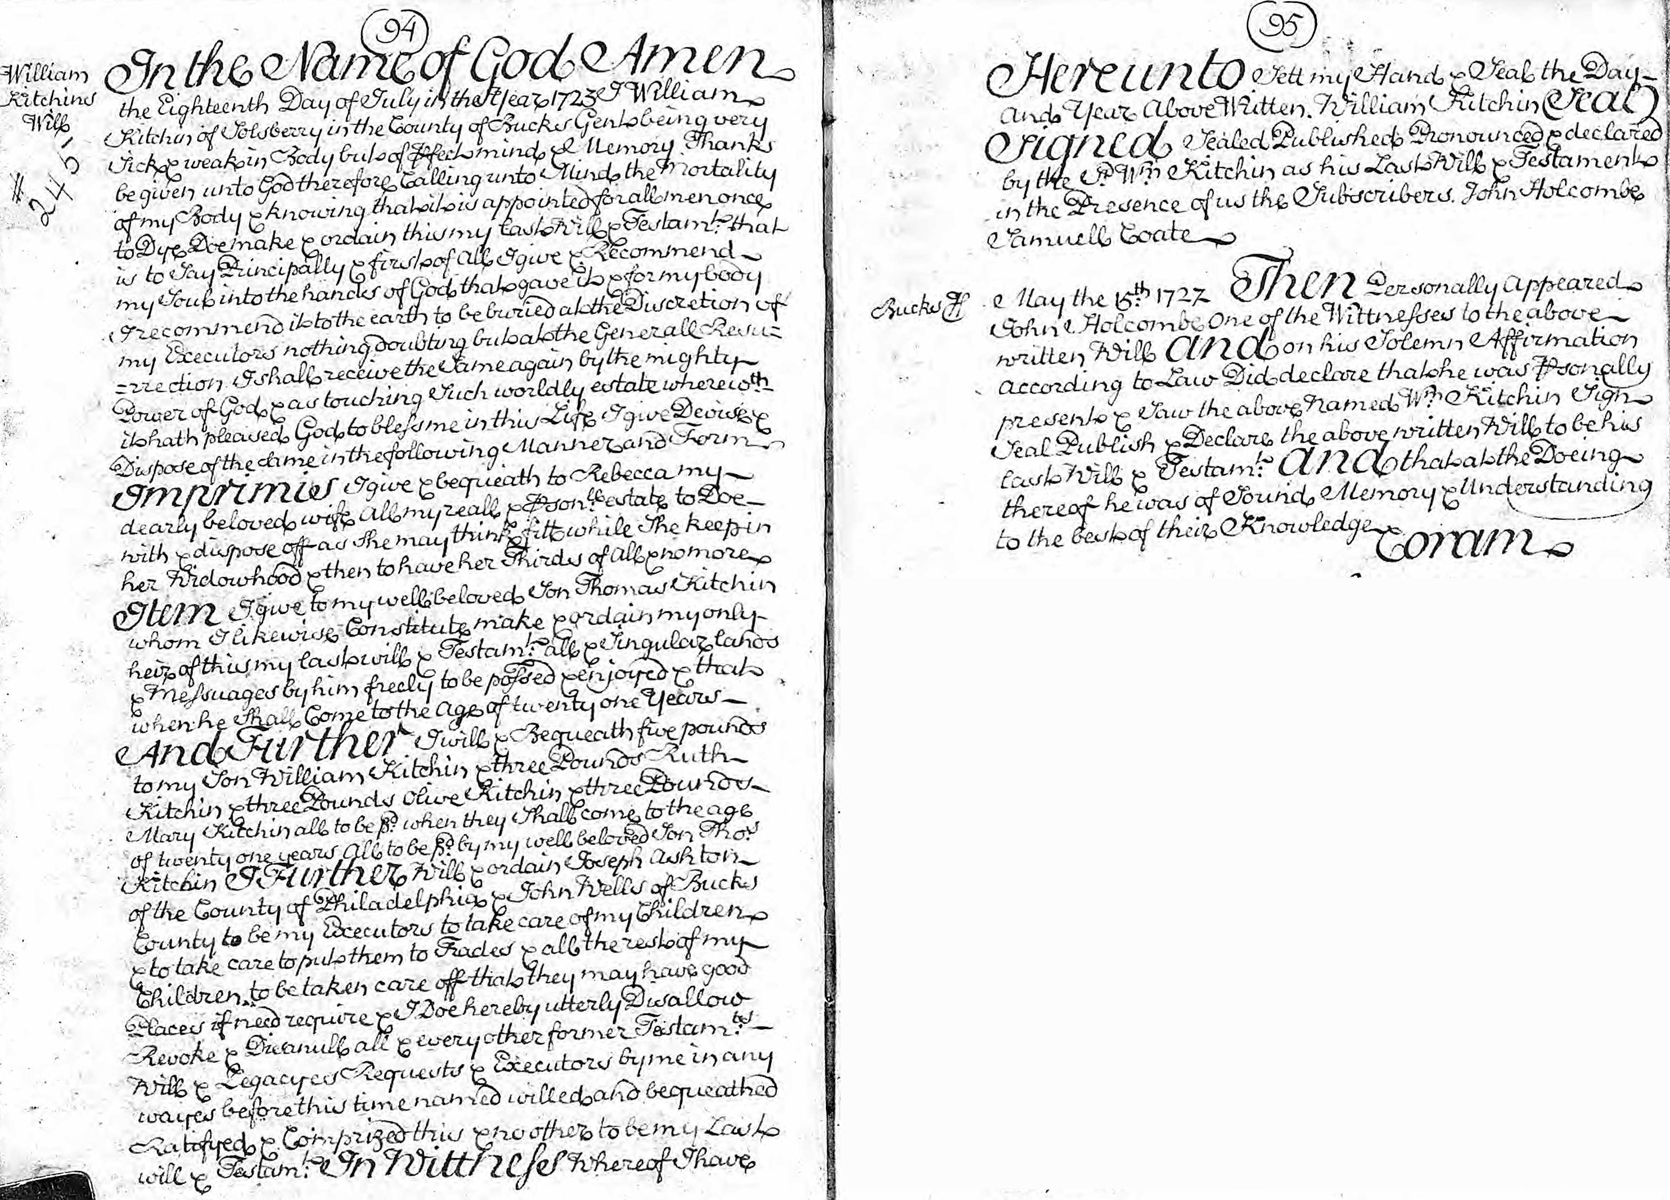 94
William
Kitchins
Will
# 245
In the Name of God Amen
the Eighteenth Day of July in the Year 1723 I William
Kitchin of Solsberry in the County of Bucks Gent being very
Sick & weak in Body but of Pfect mind & Memory Thanks
be given unto God therefore Calling unto Mind the Mortality
of my Body & knowing that it is appointed for all men once
to Dye Doe make & ordain this my Last Will & Testamt. that
is to Say Principally & first of All I give & Recommend
my Soul into the hands of God that gave it & for my body
I recommend it to the earth to be buried at the Discretion of
my Executors nothing doubting but at the Generall Resu=
=rrection I shall receive the Same again by the mighty
Power of God & as touching Such worldly estate wherewth
it hath pleased God to bless me in this Life I give Devise &
Dispose of the Same in the following Manner and Form
Imprimis I give & bequeath to Rebecca my
dearly beloved wife All my reall & Psonll estate to Doe
with & dispose off as She may think fitt while She keep in
her Widowhood & then to have her Thirds of all & no more
Item I give to my well beloved Son Thomas Kitchin
whom I likewise Constitute make & ordain my only
heir of this my last will & Testamt. all & Singular lands
& Messuages by him freely to be possed & enjoyed & that
when he Shall Come to the Age of twenty one Years
And Further I will & Bequeath five pounds
to my Son William Kitchin & three Pounds Ruth
Kitchin & three Pounds Olive Kitchin & three Pounds
Mary Kitchin all to be pd. when they Shall come to the age
of twenty one years All to be pd. by my well beloved Son Thos
Kitchin I Further Will & ordain Joseph Ashton
of the County of Philadelphia & John Wells of Bucks
County to be my Executors to take care of my Children
& to take care to put them to Trades & all the rest of my
Children to be taken care off that they may have good
Places if need require & I Doe hereby utterly Disallow
Revoke & Disanull all & every other former Testamts.
Will & Legacyes Requests & Executors by me in any
wayes before this time named willed and bequeathed
Ratifyed & Comprized this & no other to be my Last
will & Testamt. In Wittness Whereof I have
95
Hereunto Sett my Hand & Seal the Day
And Year Above Written. William Kitchin (Seal)
Signed Sealed Published Pronounced & declared
by the Sd. Wm. Kitchin as his Last Will & Testament
in the Presence of us the Subscribers. John Holcombe
Samuell Coate
Bucks
May the 15th 1727 Then Personally Appeared
John Holcombe one of the Wittnesses to the above
written Will and on his Solemn Affirmation
according to Law Did declare that he was Psonally
present & Saw the above Named Wm. Kitchin Sign
Seal Publish & Declare the above written Will to be his
last Will & Testamt. And that at the Doeing
thereof he was of Sound Memory & Understanding
to the best of their Knowledge
Coram